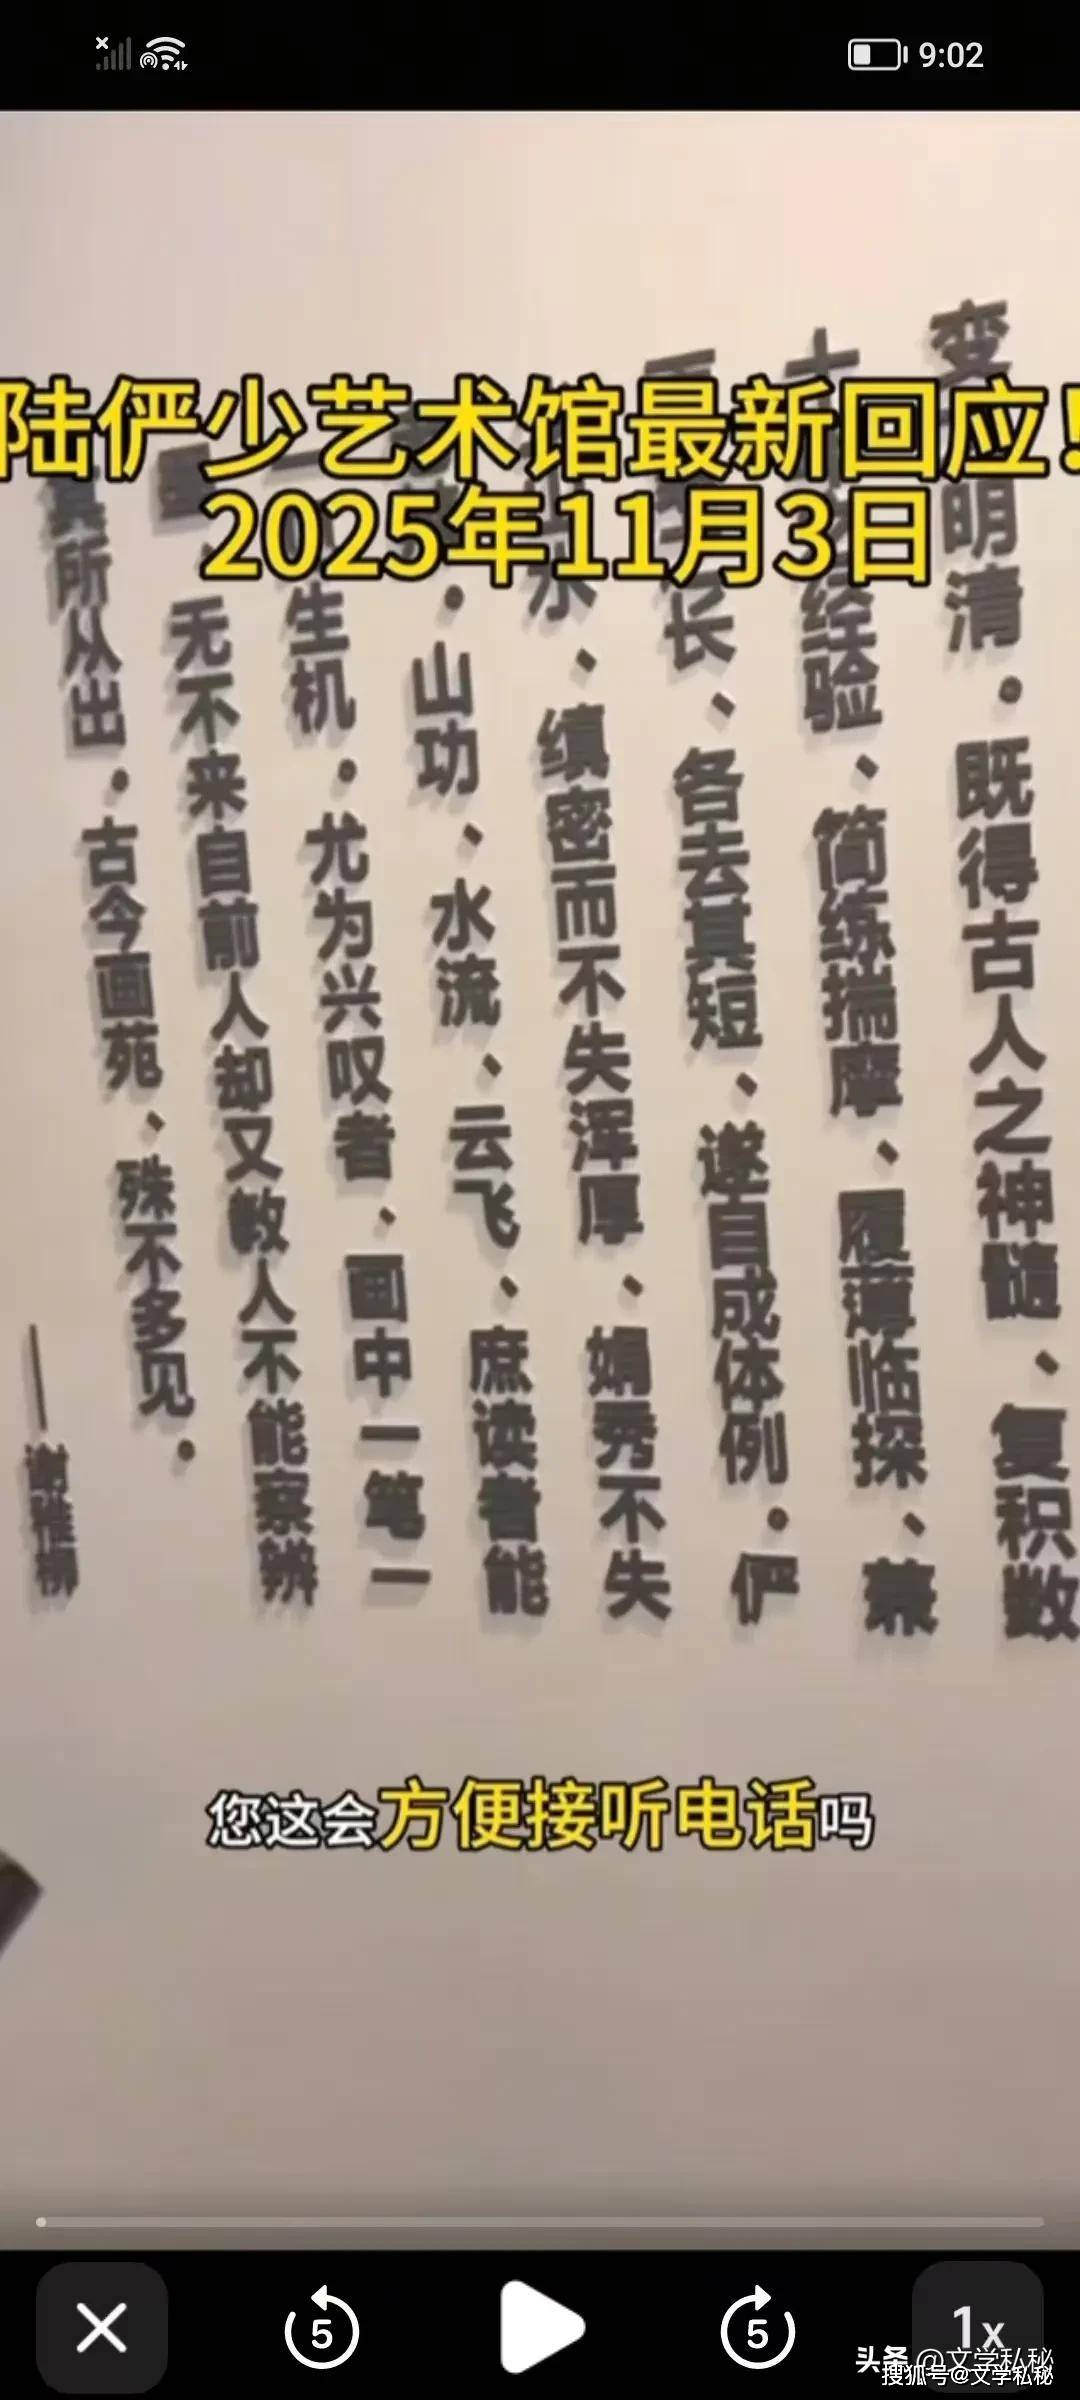 9:02
陆俨少艺术馆最新回应！
2025年11月3日
变明清。既得古人之神髓、复积数
经验、简练揣摩、履薄临探、兼
长、各去其短、遂自成体例。俨
水、缜密而不失浑厚、娟秀不失
。山功、水流、云飞、庶读者能
生机。尤为兴叹者、画中一笔一
无不来自前人却又教人不能察辨
其所从出。古今画苑、殊不多见。
——谢稚柳
您这会方便接听电话吗
5
5
1x
头条 @文学私秘
搜狐号@文学私秘